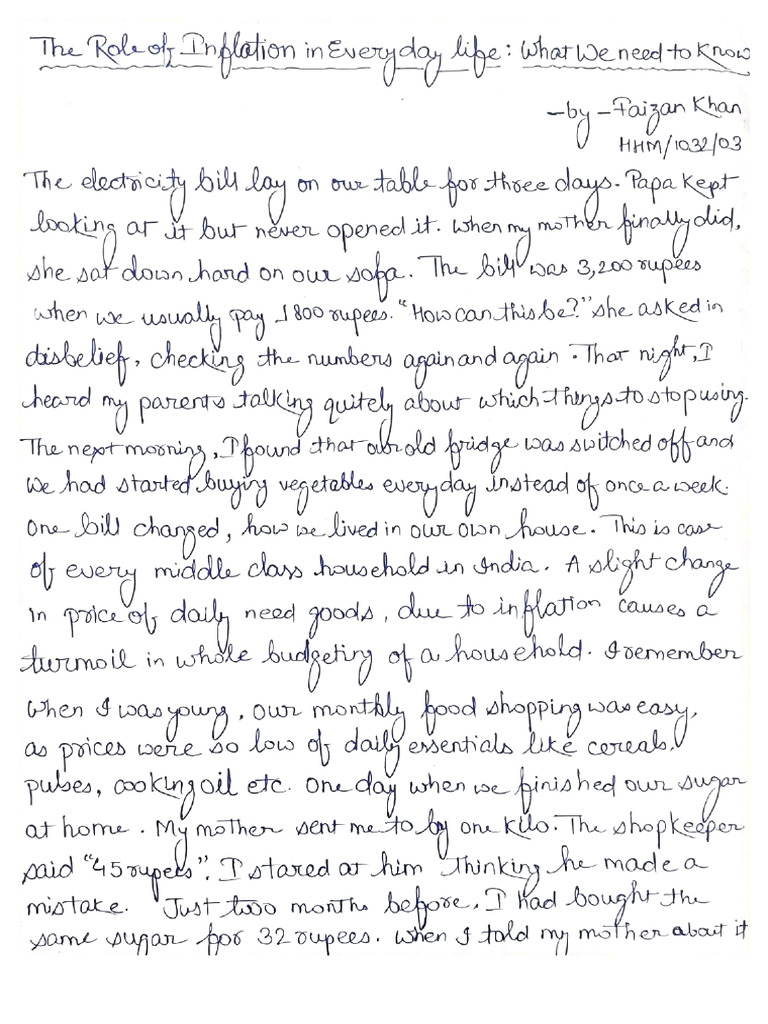 The Role of Inflation in Everyday life: What We need to Know
-by-Faizan Khan
HHM/1032/03
The electricity bill lay on our table for three days. Papa kept
looking at it but never opened it. When my mother finally did,
she sat down hard on our sofa. The bill was 3,200 rupees
when we usually pay 1800 rupees. "How can this be?" she asked in
disbelief, checking the numbers again and again. That night, I
heard my parents talking quitely about which things to stop using.
The next morning, I found that our old fridge was switched off and
we had started buying vegetables everyday instead of once a week.
One bill changed, how we lived in our own house. This is case
of every middle class household in India. A slight change
in price of daily need goods, due to inflation causes a
turmoil in whole budgeting of a household. I remember
when I was young, our monthly food shopping was easy,
as prices were so low of daily essentials like cereals,
pulses, cooking oil etc. One day when we finished our sugar
at home. My mother sent me to by one kilo. The shopkeeper
said "45 rupees". I stared at him thinking he made a
mistake. Just two months before, I had bought the
same sugar for 32 rupees. When I told my mother about it